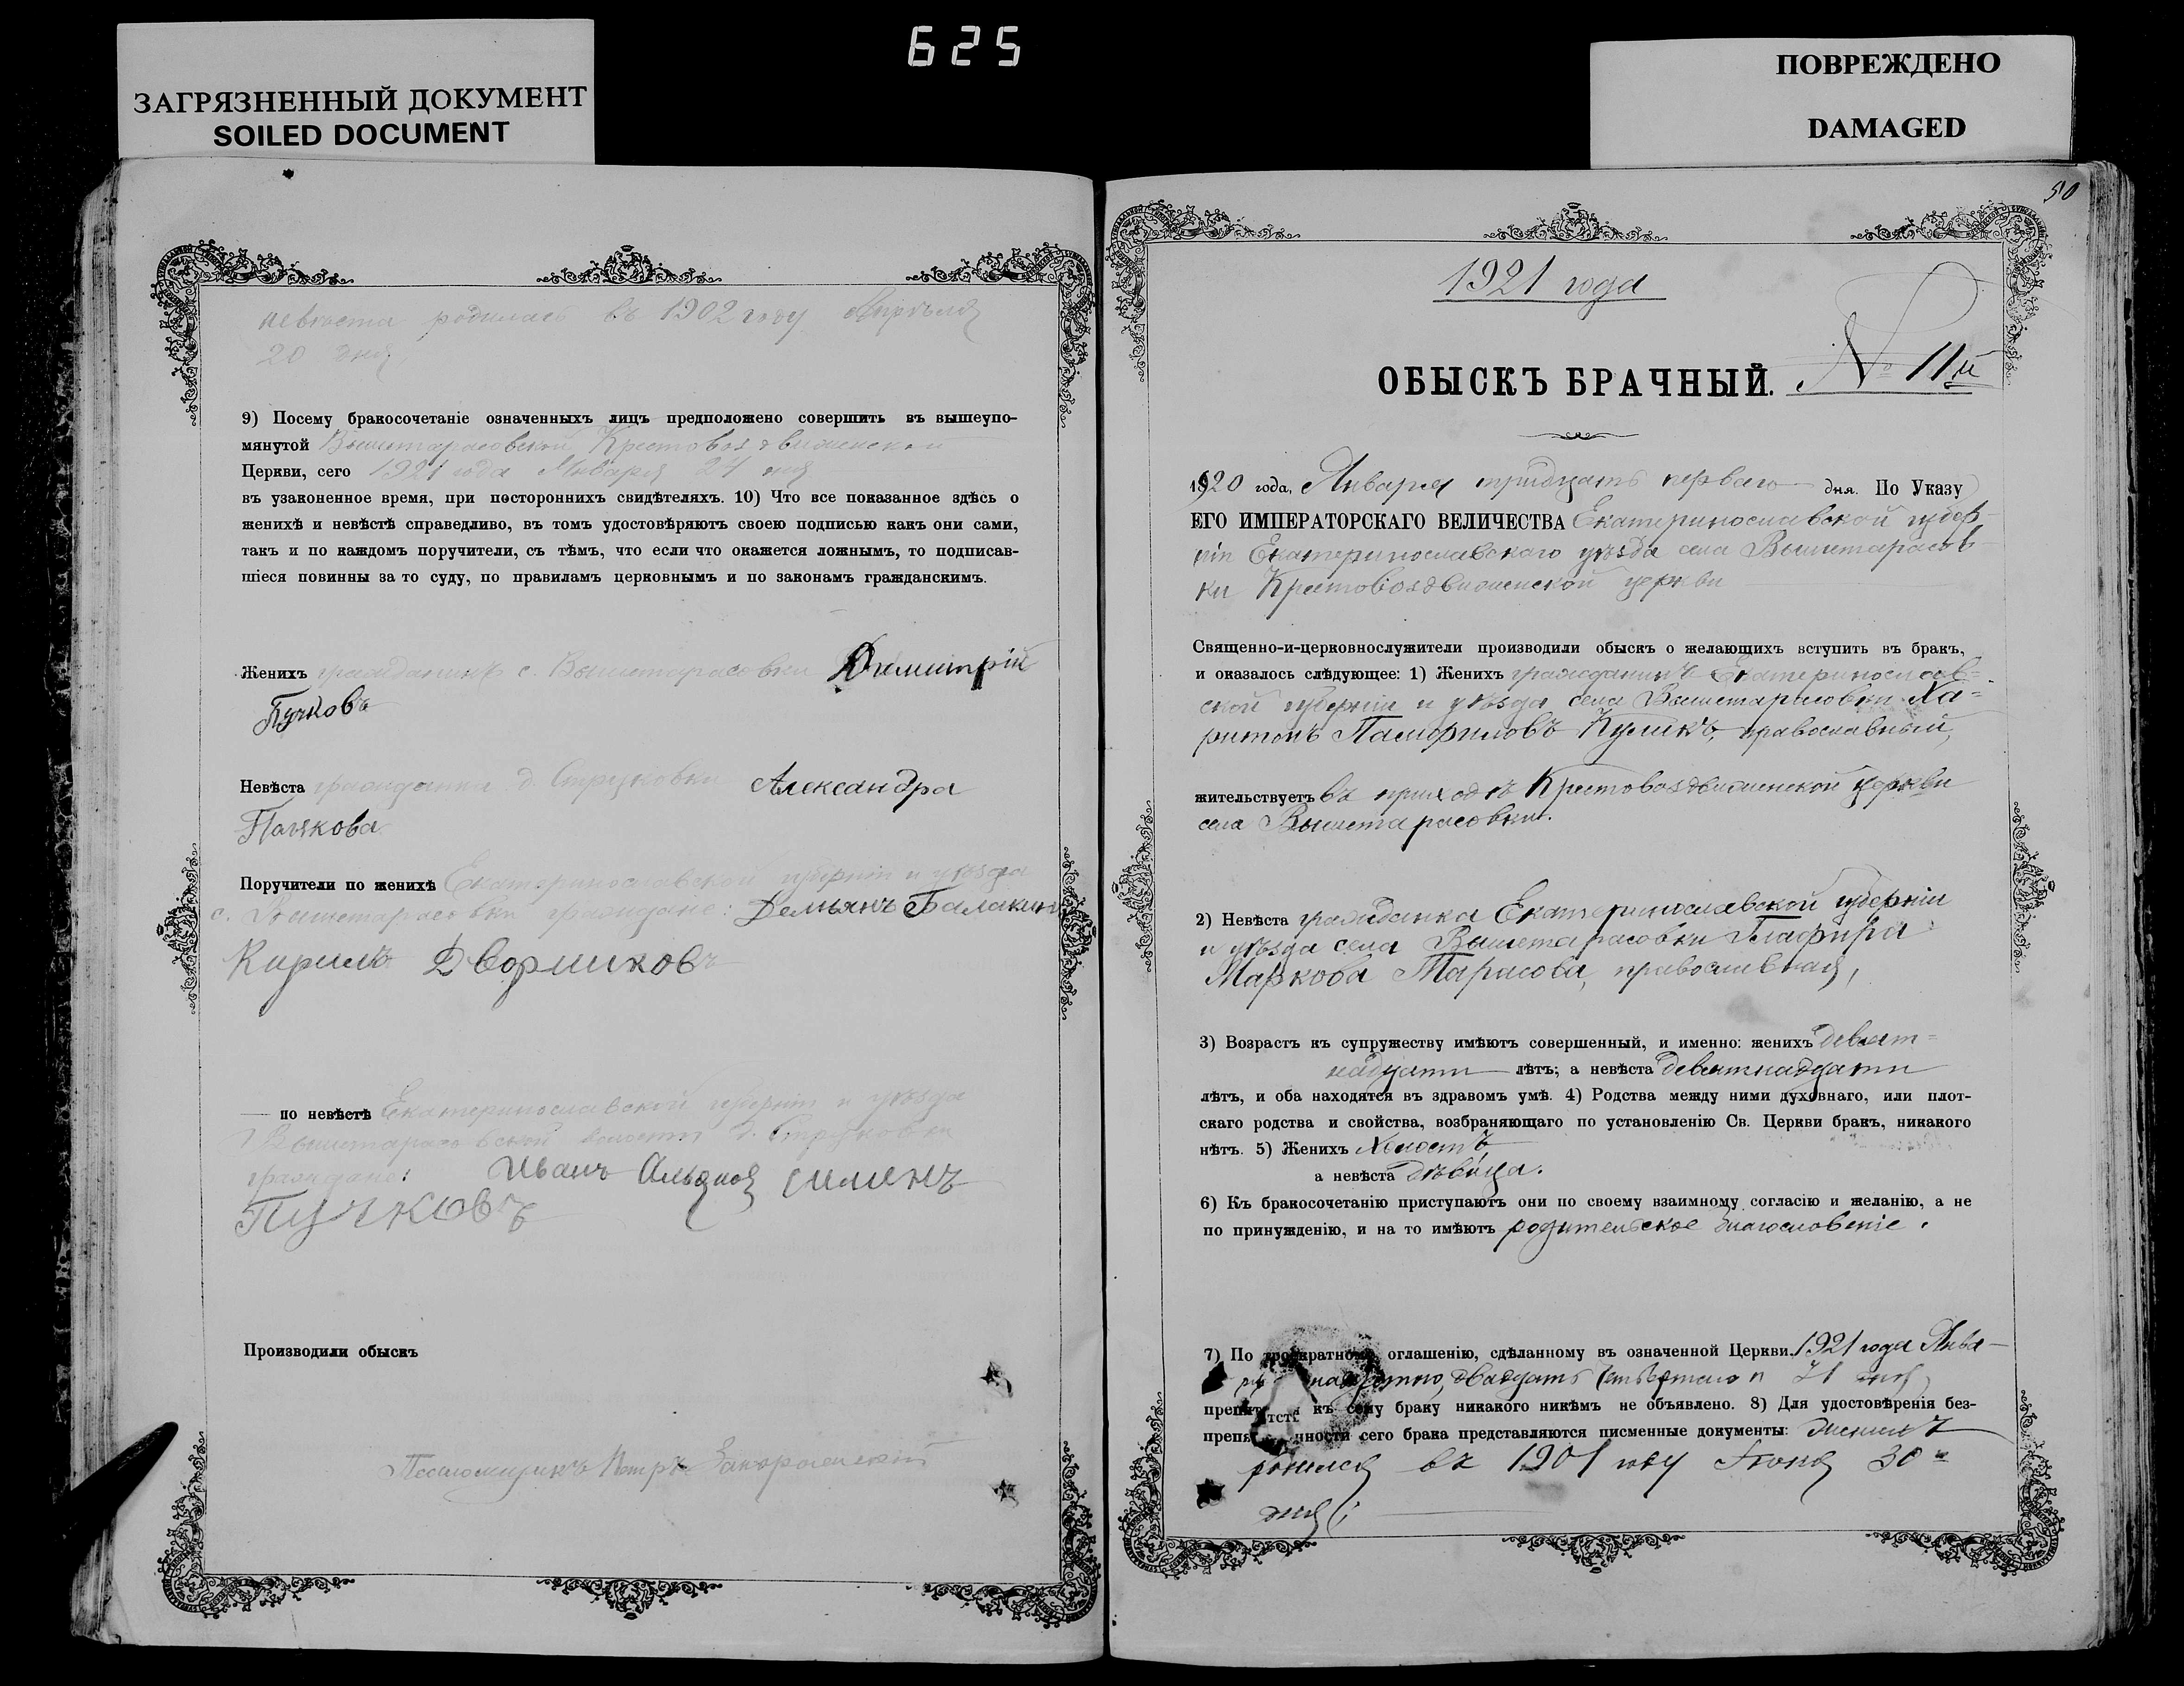 625
ЗАГРЯЗНЕННЫЙ ДОКУМЕНТ
SOILED DOCUMENT
ПОВРЕЖДЕНО
DAMAGED
невѣста родилась въ 1902 году Апрѣля
20 дня,
9) Посему бракосочетаніе означенныхъ лицъ предположено совершить въ вышеупо-
мянутой Вышетарасовской Крестовоздвиженской
Церкви, сего 1921 года Января 24 дня
въ узаконенное время, при постороннихъ свидѣтеляхъ. 10) Что все показанное здѣсь о
женихѣ и невѣстѣ справедливо, въ томъ удостовѣряютъ своею подписью какъ они сами,
такъ и по каждомъ поручители, съ тѣмъ, что если что окажется ложнымъ, то подписав-
шіеся повинны за то суду, по правиламъ церковнымъ и по законамъ гражданскимъ.
Женихъ гражданинъ с. Вышетарасовки Димитрій
Пучковъ
Невѣста гражданка д. Александра
Поручители по женихѣ Екатеринославской губерніи и уѣзда
с. Вышетарасовки граждане: Демьянъ Балакинъ
Кирилъ Дворниковъ
по невѣстѣ Екатеринославской губерніи и уѣзда
Вышетарасовской волости д.
граждане: Иванъ
Пучковъ
Производили обыскъ
Псаломщикъ Петръ
50
1921 года
ОБЫСКЪ БРАЧНЫЙ. № 11й
1920 года, Января тридцать перваго дня. По Указу
ЕГО ИМПЕРАТОРСКАГО ВЕЛИЧЕСТВА Екатеринославской губер-
ніи Екатеринославскаго уѣзда села Вышетарасов-
ки Крестовоздвиженской церкви
Священно-и-церковнослужители производили обыскъ о желающихъ вступить въ бракъ,
и оказалось слѣдующее: 1) Женихъ гражданинъ Екатеринослав-
ской губерніи и уѣзда села Вышетарасовки Ха-
ритонъ Памфиловъ Куликъ, православный,
жительствуетъ въ приходѣ Крестовоздвиженской церкви
села Вышетарасовки.
2) Невѣста гражданка Екатеринославской губерніи
и уѣзда села Вышетарасовки Глафира
Маркова Тарасова, православная,
3) Возрастъ къ супружеству имѣютъ совершенный, и именно: женихъ девят-
надцати лѣтъ; а невѣста девятнадцати
лѣтъ, и оба находятся въ здравомъ умѣ. 4) Родства между ними духовнаго, или плот-
скаго родства и свойства, возбраняющаго по установленію Св. Церкви бракъ, никакого
нѣтъ. 5) Женихъ холостъ,
а невѣста дѣвица.
6) Къ бракосочетанію приступаютъ они по своему взаимному согласію и желанію, а не
по принужденію, и на то имѣютъ родительское благословеніе.
7) По троекратному оглашенію, сдѣланному въ означенной Церкви 1921 года Янва-
двадцать четвертаго и 31 дня,
къ сему браку никакого никѣмъ не объявлено. 8) Для удостовѣренія без-
сего брака представляются писменные документы: женихъ
родился въ 1901 году 30
дня;